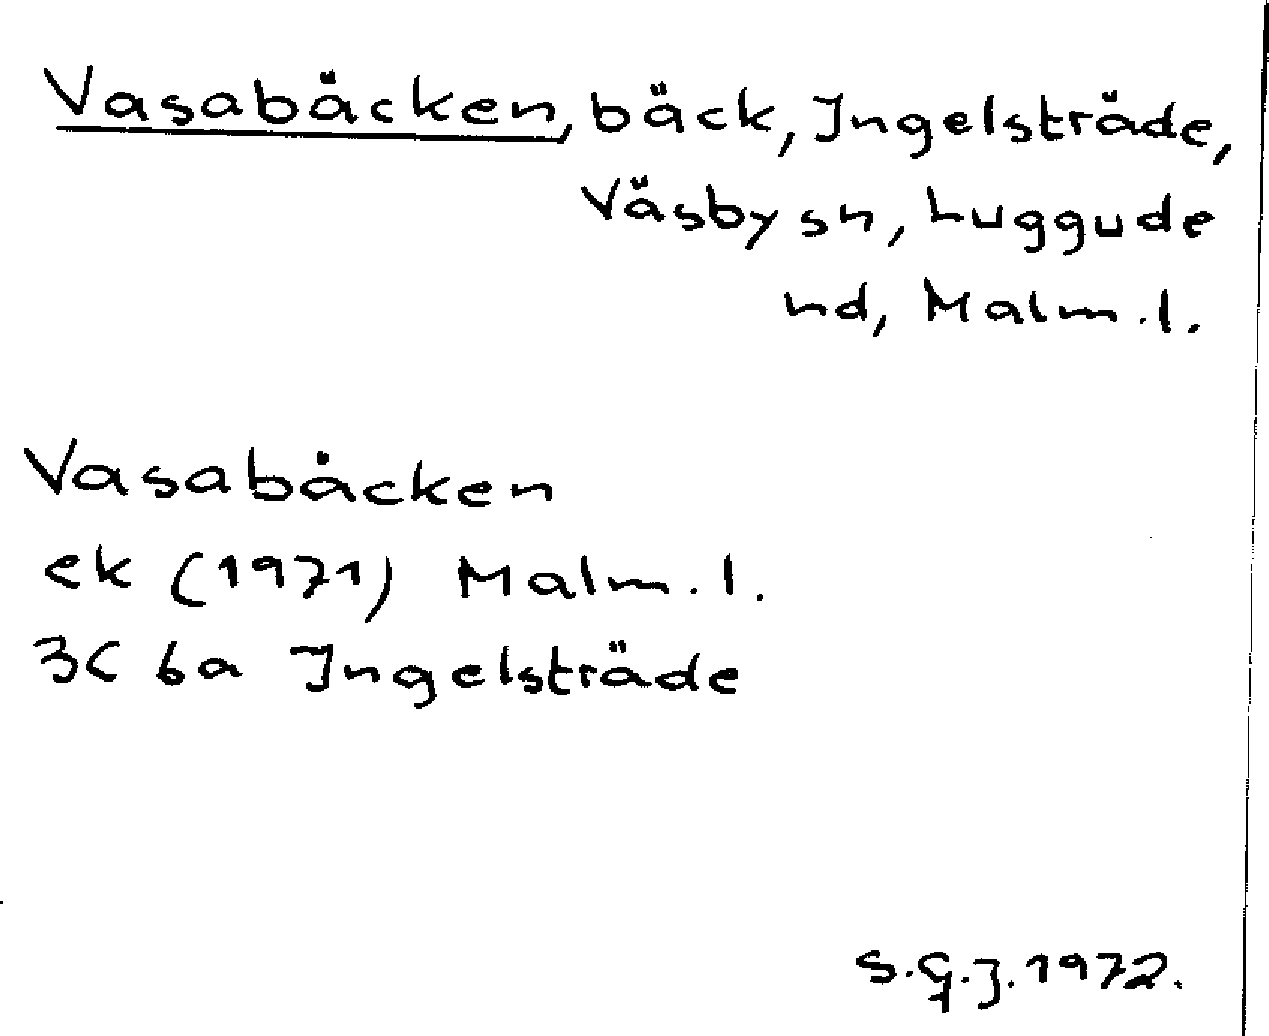 Vasabäcken, bäck, Ingelsträde,
Väsby sn, Luggude
hd, Malm.l.
Vasabäcken
ek (1971) Malm.l.
3C 6a Ingelsträde
S.G.J. 1972.